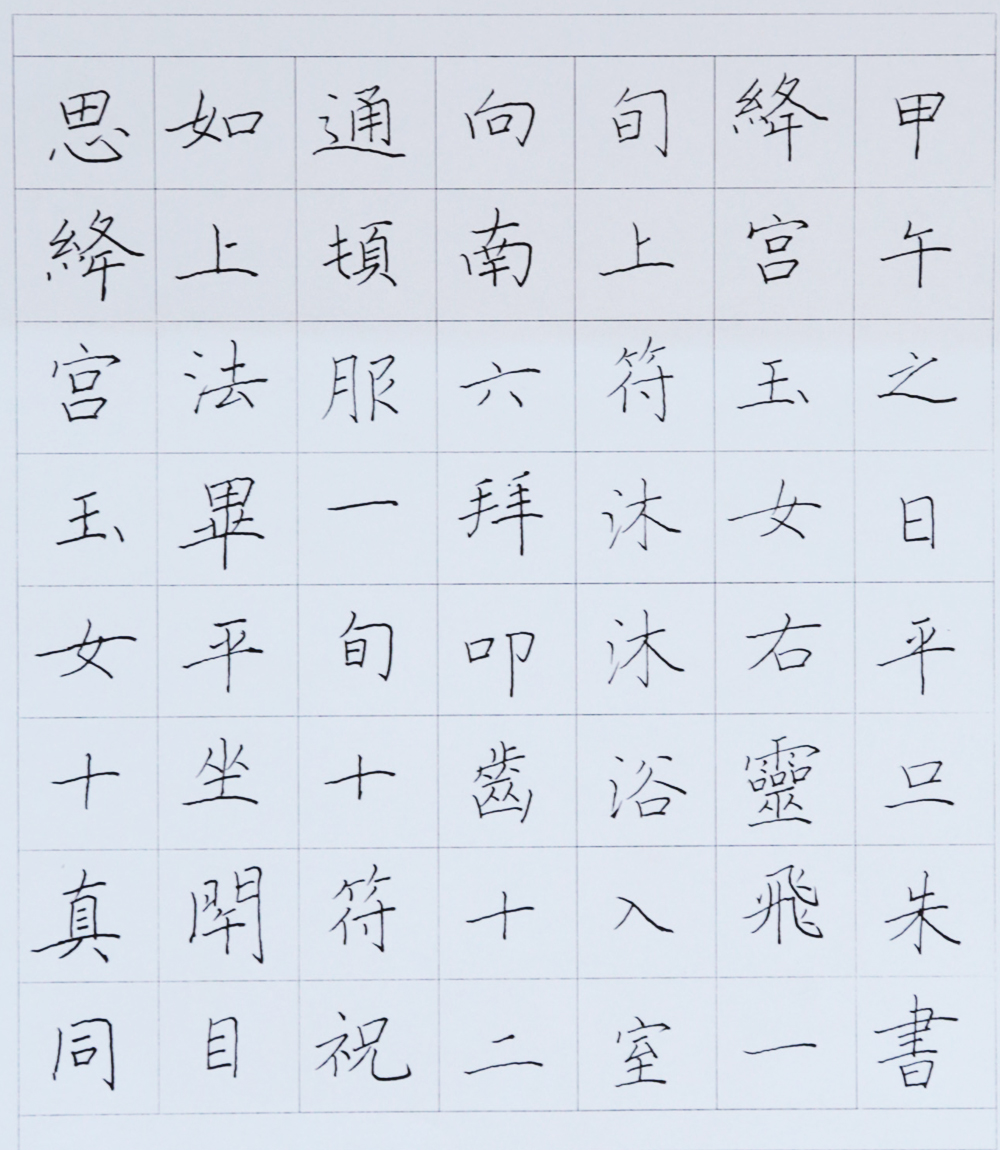 甲午之日平旦朱書
絳宫玉女右靈飛一
旬上符沐沐浴入室
向南六拜叩齒十二
通頓服一旬十符祝
如上法畢平坐閇目
思絳宫玉女十真同